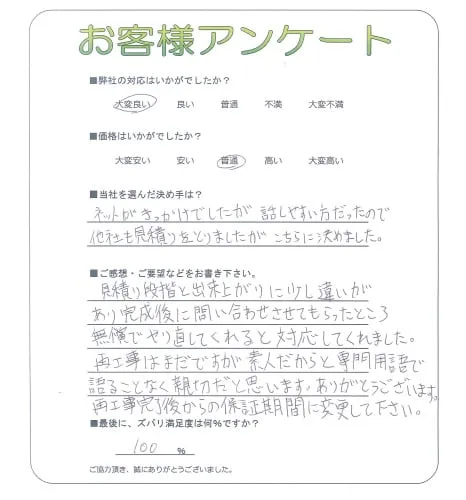 お客様アンケート
■弊社の対応はいかがでしたか？
大変良い 良い 普通 不満 大変不満
■価格はいかがでしたか？
大変安い 安い 普通 高い 大変高い
■当社を選んだ決め手は？
ネットがきっかけでしたが 話しやすい方だったので
他社も見積りをとりましたが こちらに決めました。
■ご感想・ご要望などをお書き下さい。
見積り段階と出来上がりに少し違いが
あり完成後に問い合わせさせてもらったところ
無償でやり直してくれると対応してくれました。
再工事はまだですが素人だからと専門用語で
語ることなく親切だと思います。ありがとうございます。
再工事完了後からの保証期間に変更して下さい。
■最後に、ズバリ満足度は何%ですか？
100 %
ご協力頂き、誠にありがとうございました。